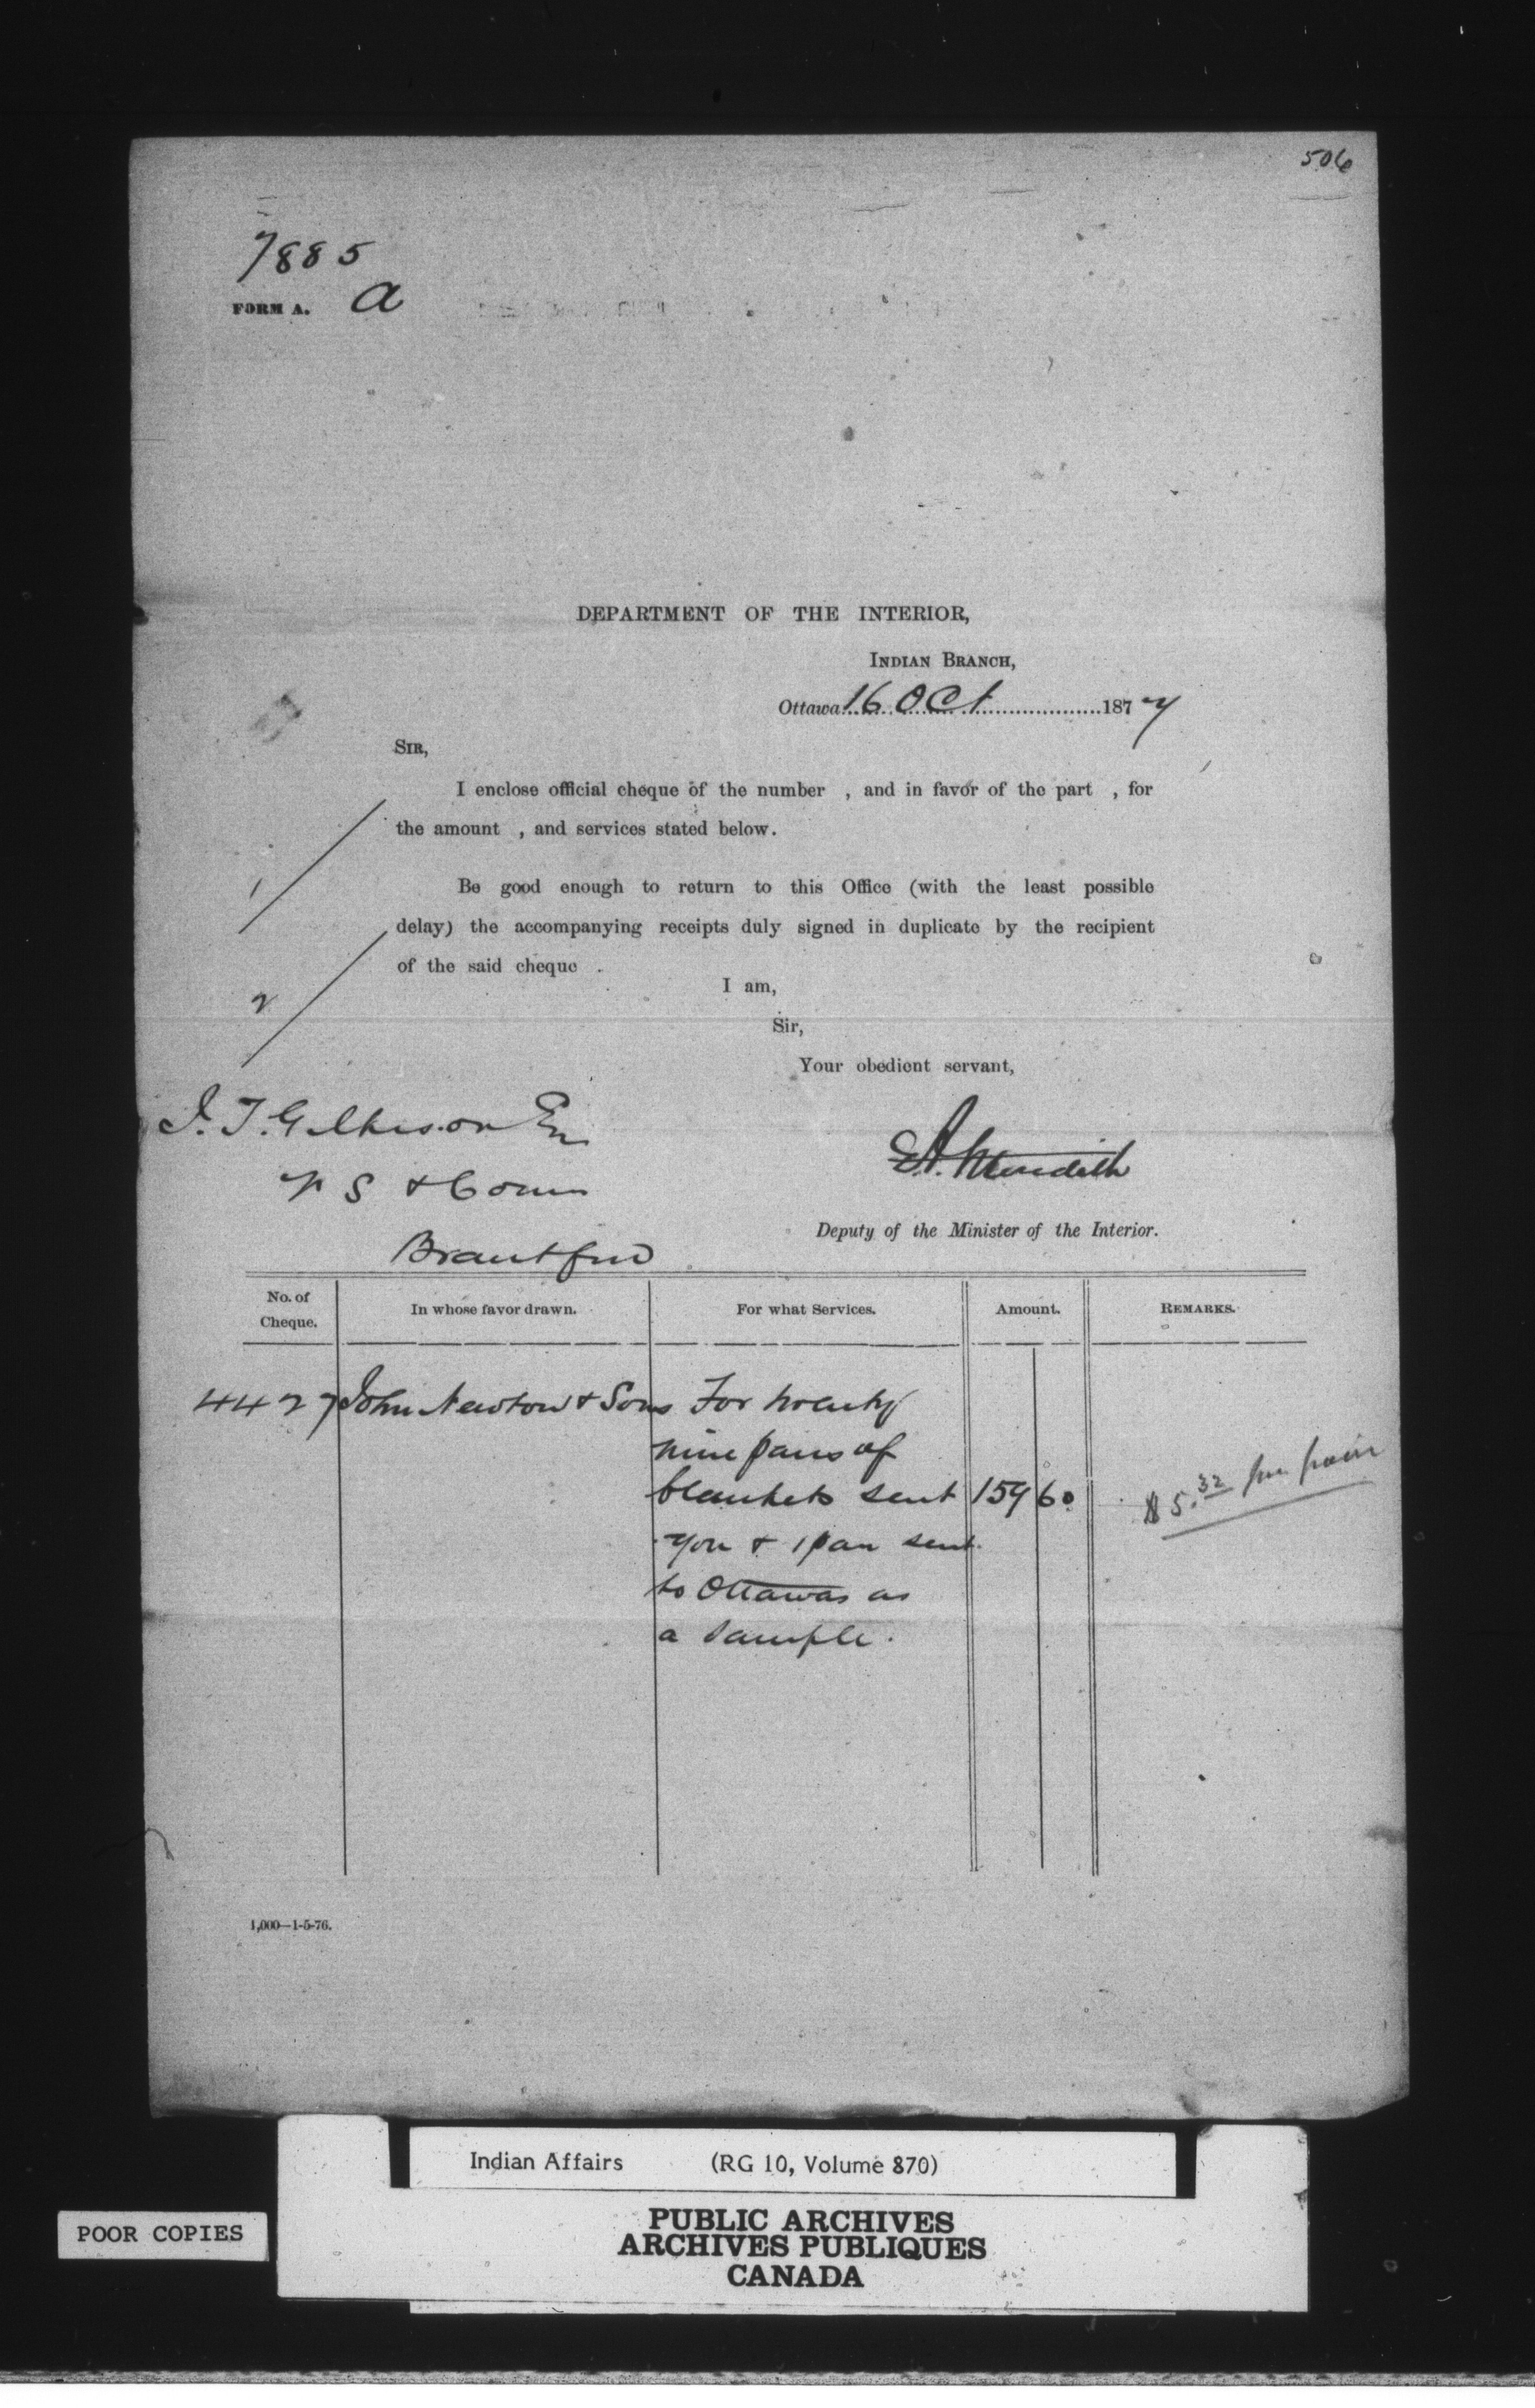 506
7885
FORM A. a
DEPARTMENT OF THE INTERIOR,
INDIAN BRANCH,
Ottawa 16 Oct 1877
SIR,
I enclose official cheque of the number , and in favor of the part , for
the amount , and services stated below.
1
Be good enough to return to this Office (with the least possible
delay) the accompanying receipts duly signed in duplicate by the recipient
of the said cheque .
2
I am,
Sir,
Your obedient servant,
J. T. Gilkison
EA. Meredith
V S & Comr
Deputy of the Minister of the Interior.
Brantford
No. of Cheque. In whose favor drawn. For what Services. Amount. REMARKS.
4427 John Newton & Sons For twenty
nine pairs of
blankets sent 159 60 $5.32 per pair
you & 1 pair sent
to Ottawa as
a sample.
1,000—1-5-76.
Indian Affairs (RG 10, Volume 870)
POOR COPIES
PUBLIC ARCHIVES
ARCHIVES PUBLIQUES
CANADA